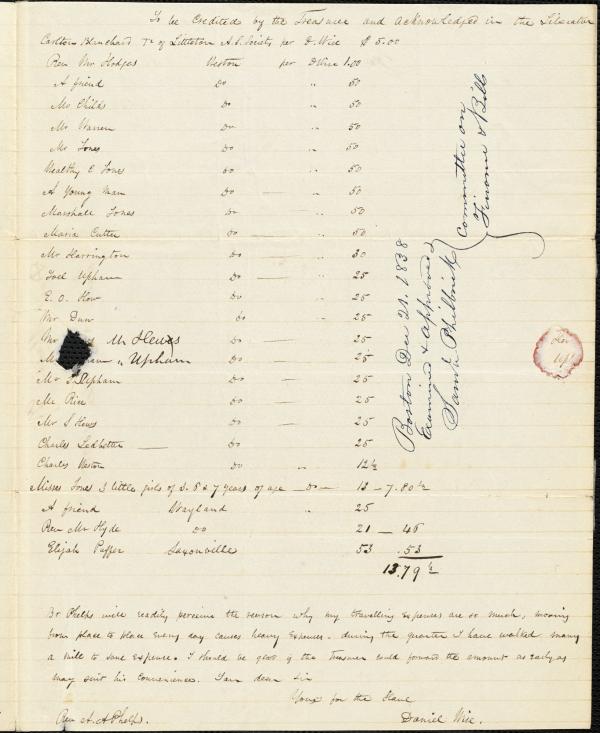 To be Credited by the Treasurer and acknowledged in the Liberator
Carlton Blanchard Tr of Littleton A.S. Society per D. Wise $5.00
Rev Mr Hodges Weston per D Wise 1.00
A friend Do " 50
Mr Childs Do " 50
Mr Warren Do " 50
Mr Jones Do " 50
Wealthy E Jones Do " 50
A Young Man Do " 50
Marshall Jones Do " 50
Maria Cutter Do " 50
Mr Harrington Do " 30
Joel Upham Do " 25
E. O. How Do " 25
Mr Dunn Do " 25
Mr Mr Hews Do " 25
M " Upham Do " 25
Mr Upham Do " 25
Mr Rice Do " 25
Mr S Hews Do " 25
Charles Ledbetter Do " 25
Charles Weston Do " 12½
Misses Jones 3 little girls of 3. 5 & 7 years of age Do 13 — 7.80½
A friend Wayland " 25
Rev Mr Hyde Do 21 — 46
Elijah Puffer Saxonville 53 .53
13.79½
Boston Dec 21. 1838
Examined & approved
Saml Philbrick
Committee on
Finance & Bills
Br Phelps will readily perceive the reason why my travelling expenses are so much, moving
from place to place every day causes heavy expenses. during the quarter I have walked many
a mile to save expense. I should be glad if the Treasurer could forward the amount as early as
may suit his convenience. I am dear sir
Yours for the Slave
Rev A. A Phelps. Daniel Wise.